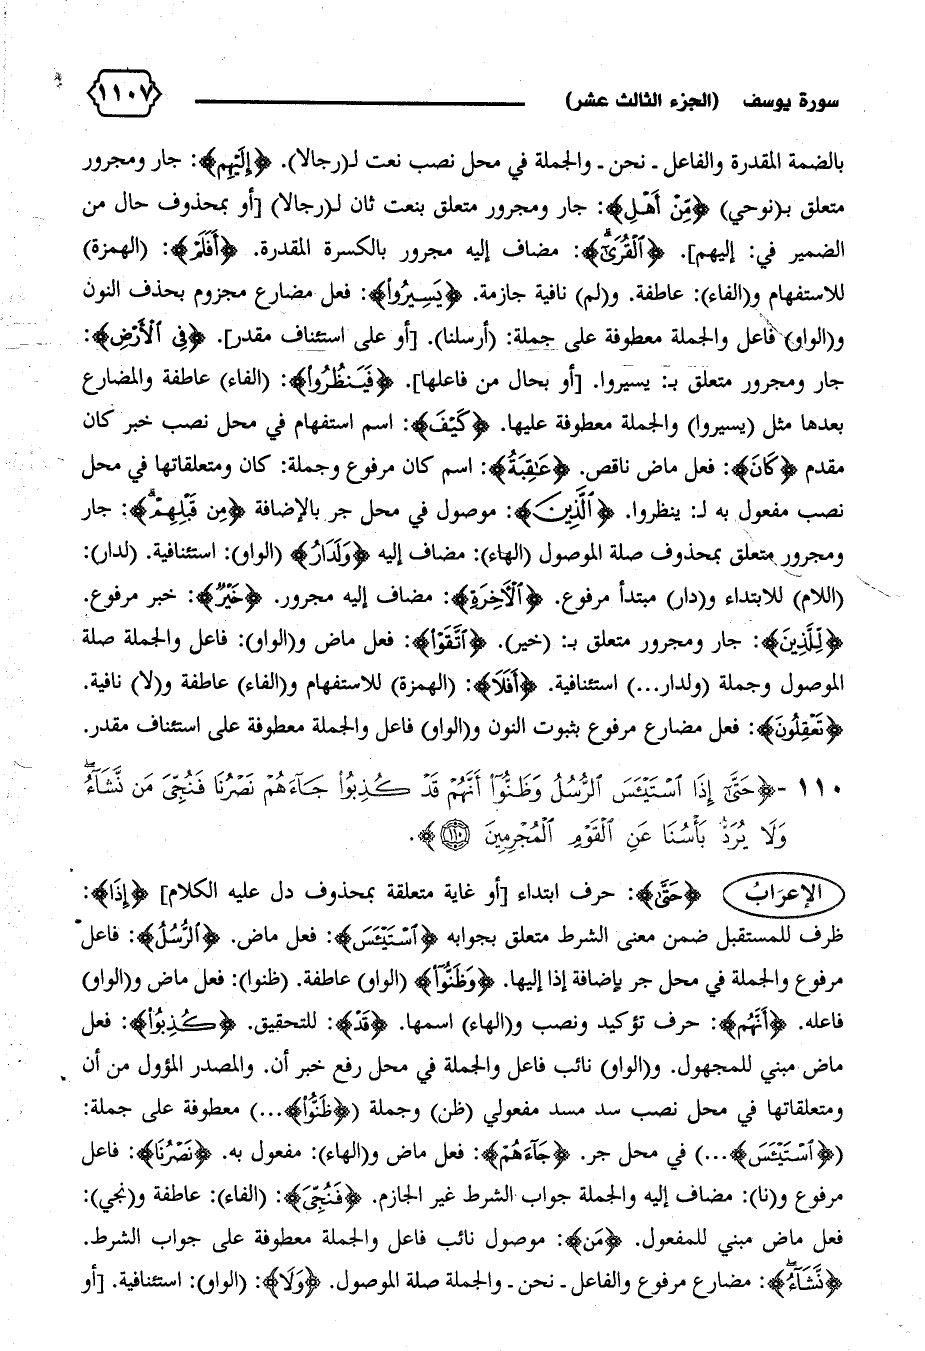 سورة يوسف (الجزء الثالث عشر) ١١٠٧
بالضمة المقدرة والفاعل ـ نحن ـ والجملة في محل نصب نعت لـ(رجالا). ﴿إِلَيْهِم﴾: جار ومجرور
متعلق بـ(نوحي) ﴿مِّنْ أَهْلِ﴾: جار ومجرور متعلق بنعت ثان لـ(رجالا) [أو بمحذوف حال من
الضمير في: إليهم]. ﴿ٱلْقُرَىٰٓ﴾: مضاف إليه مجرور بالكسرة المقدرة. ﴿أَفَلَمْ﴾: (الهمزة)
للاستفهام و(الفاء): عاطفة. و(لم) نافية جازمة. ﴿يَسِيرُوا۟﴾: فعل مضارع مجزوم بحذف النون
و(الواو) فاعل والجملة معطوفة على جملة: (أرسلنا). [أو على استئناف مقدر]. ﴿فِى ٱلْأَرْضِ﴾:
جار ومجرور متعلق بـ: يسيروا. [أو بحال من فاعلها]. ﴿فَيَنظُرُوا۟﴾: (الفاء) عاطفة والمضارع
بعدها مثل (يسيروا) والجملة معطوفة عليها. ﴿كَيْفَ﴾: اسم استفهام في محل نصب خبر كان
مقدم ﴿كَانَ﴾: فعل ماض ناقص. ﴿عَٰقِبَةُ﴾: اسم كان مرفوع وجملة: كان ومتعلقاتها في محل
نصب مفعول به لـ: ينظروا. ﴿ٱلَّذِينَ﴾: موصول في محل جر بالإضافة ﴿مِن قَبْلِهِمْ﴾: جار
ومجرور متعلق بمحذوف صلة الموصول (الهاء): مضاف إليه ﴿وَلَدَارُ﴾ (الواو): استئنافية. (لدار):
(اللام) للابتداء و(دار) مبتدأ مرفوع. ﴿ٱلْآخِرَةِ﴾: مضاف إليه مجرور. ﴿خَيْرٌ﴾: خبر مرفوع.
﴿لِّلَّذِينَ﴾: جار ومجرور متعلق بـ: (خير). ﴿ٱتَّقَوْا۟﴾: فعل ماض و(الواو): فاعل والجملة صلة
الموصول وجملة (ولدار...) استئنافية. ﴿أَفَلَا﴾: (الهمزة) للاستفهام و(الفاء) عاطفة و(لا) نافية.
﴿تَعْقِلُونَ﴾: فعل مضارع مرفوع بثبوت النون و(الواو) فاعل والجملة معطوفة على استئناف مقدر.
١١٠ - ﴿حَتَّىٰٓ إِذَا ٱسْتَيْـَٔسَ ٱلرُّسُلُ وَظَنُّوٓا۟ أَنَّهُمْ قَدْ كُذِبُوا۟ جَآءَهُمْ نَصْرُنَا فَنُجِّىَ مَن نَّشَآءُ ۖ
وَلَا يُرَدُّ بَأْسُنَا عَنِ ٱلْقَوْمِ ٱلْمُجْرِمِينَ ١١٠﴾.
الإعرَابُ ﴿حَتَّىٰٓ﴾: حرف ابتداء [أو غاية متعلقة بمحذوف دل عليه الكلام] ﴿إِذَا﴾:
ظرف للمستقبل ضمن معنى الشرط متعلق بجوابه ﴿ٱسْتَيْـَٔسَ﴾: فعل ماض. ﴿ٱلرُّسُلُ﴾: فاعل
مرفوع والجملة في محل جر بإضافة إذا إليها. ﴿وَظَنُّوٓا۟﴾ (الواو) عاطفة. (ظنوا): فعل ماض و(الواو)
فاعله. ﴿أَنَّهُمْ﴾: حرف تؤكيد ونصب و(الهاء) اسمها. ﴿قَدْ﴾: للتحقيق. ﴿كُذِبُوا۟﴾: فعل
ماض مبني للمجهول. و(الواو) نائب فاعل والجملة في محل رفع خبر أن. والمصدر المؤول من أن
ومتعلقاتها في محل نصب سد مسد مفعولي (ظن) وجملة (﴿ظَنُّوٓا۟﴾...) معطوفة على جملة:
(﴿ٱسْتَيْـَٔسَ﴾...) في محل جر. ﴿جَآءَهُمْ﴾: فعل ماض و(الهاء): مفعول به. ﴿نَصْرُنَا﴾: فاعل
مرفوع و(نا): مضاف إليه والجملة جواب الشرط غير الجازم. ﴿فَنُجِّىَ﴾: (الفاء): عاطفة و(نجي):
فعل ماض مبني للمفعول. ﴿مَن﴾: موصول نائب فاعل والجملة معطوفة على جواب الشرط.
﴿نَّشَآءُ ۖ﴾: مضارع مرفوع والفاعل ـ نحن ـ والجملة صلة الموصول. ﴿وَلَا﴾: (الواو): استئنافية. [أو